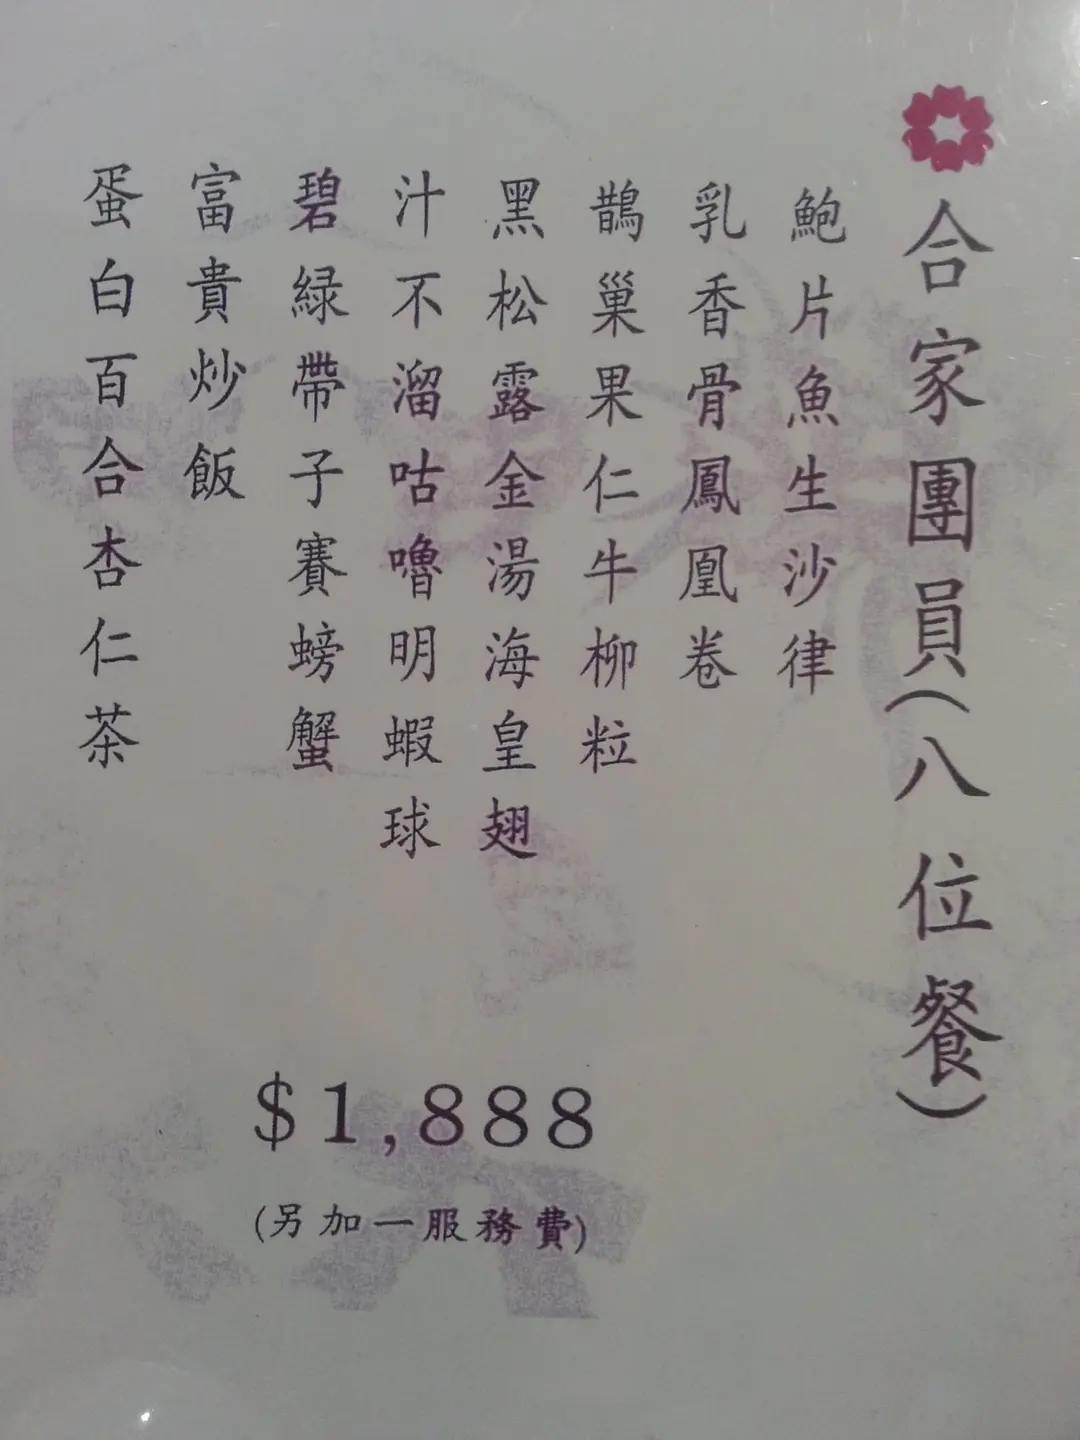 合家團員(八位餐)
鮑片魚生沙律
乳香骨鳳凰卷
鵲巢果仁牛柳粒
黑松露金湯海皇翅
汁不溜咕嚕明蝦球
碧緑帶子賽螃蟹
富貴炒飯
蛋白百合杏仁茶
$1,888
(另加一服務費)